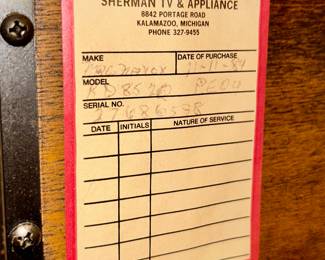 SHERMAN TV & APPLIANCE
8842 PORTAGE ROAD
KALAMAZOO, MICHIGAN
PHONE 327-9455
MAKE DATE OF PURCHASE
Magnavox 11-11-84
MODEL
SERIAL NO.
DATE INITIALS NATURE OF SERVICE